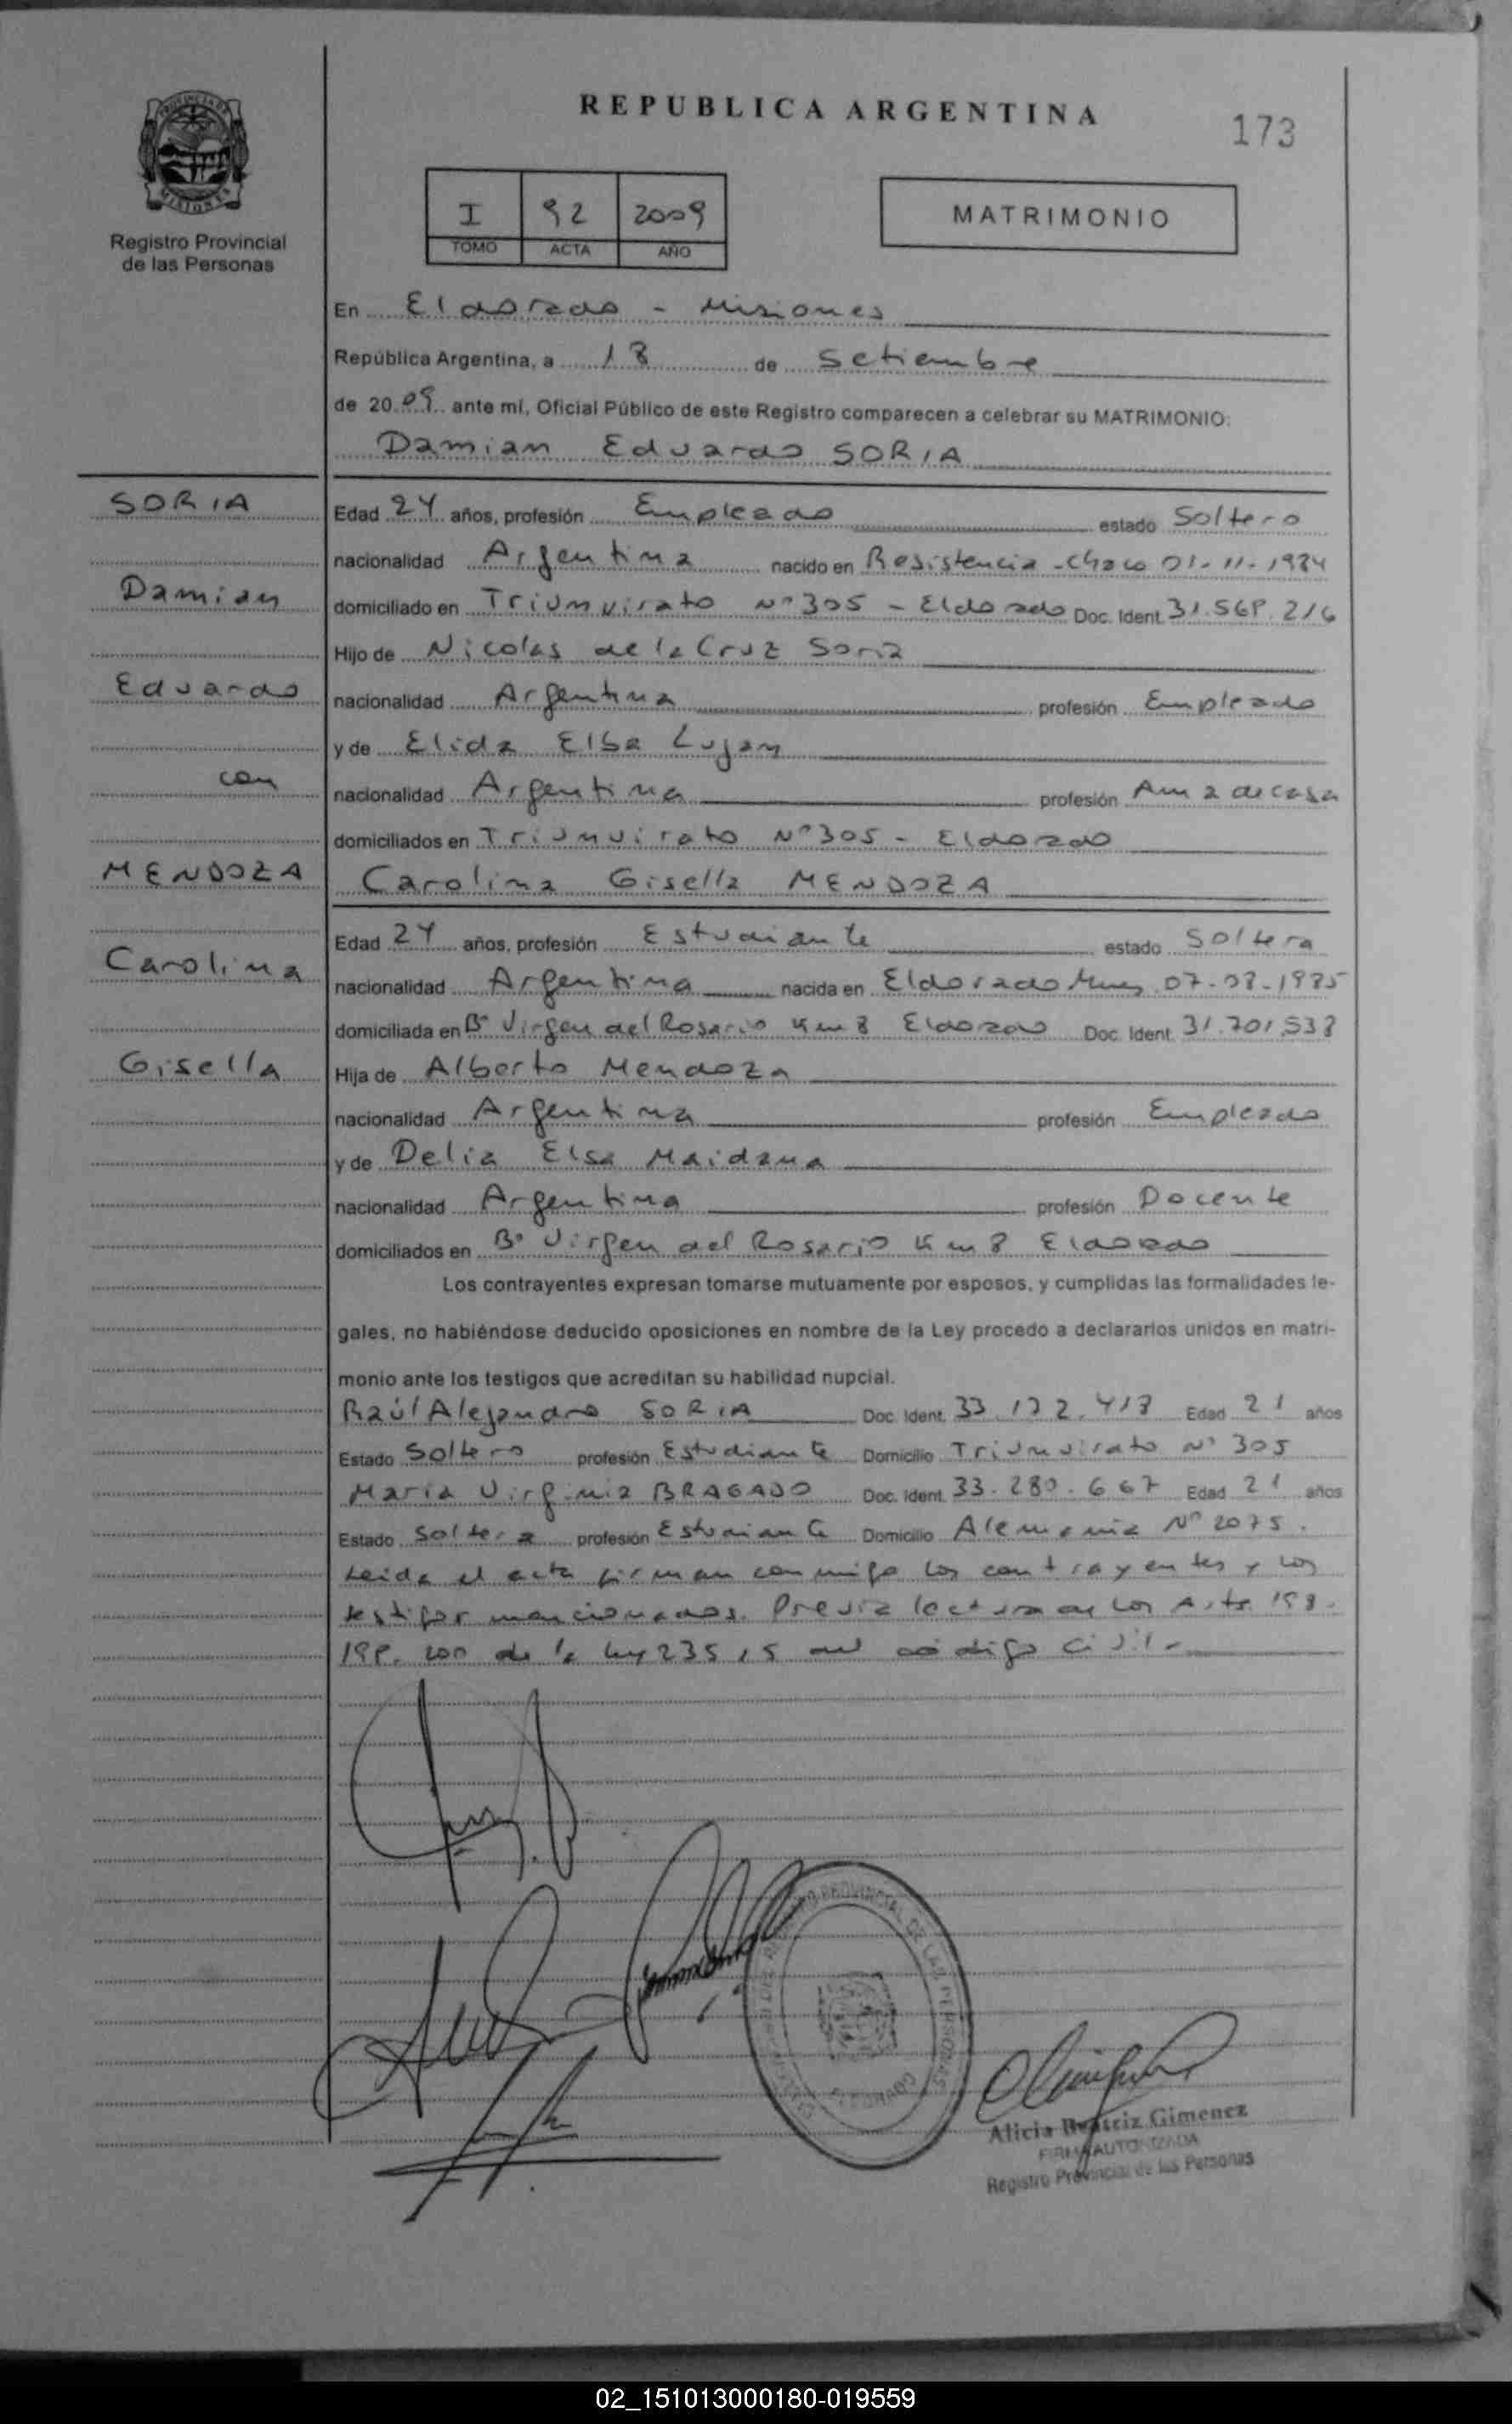 REPUBLICA ARGENTINA
173
PROVINCIA DE
MISIONES
Registro Provincial
de las Personas
I 92 2009
TOMO ACTA AÑO
MATRIMONIO
En Eldorado - Misiones
República Argentina, a 18 de Setiembre
de 20 09 ante mí, Oficial Público de este Registro comparecen a celebrar su MATRIMONIO:
Damian Eduardo SORIA
SORIA
Damian
Eduardo
con
MENDOZA
Carolina
Gisella
Edad 24 años, profesión Empleado estado Soltero
nacionalidad Argentina nacido en Resistencia - Chaco 01-11-1984
domiciliado en Triunvirato Nº 305 - Eldorado Doc. Ident. 31.568.216
Hijo de Nicolas de la Cruz Soria
nacionalidad Argentina profesión Empleado
y de Elida Elba Lujan
nacionalidad Argentina profesión Ama de casa
domiciliados en Triunvirato Nº 305 - Eldorado
Carolina Gisella MENDOZA
Edad 24 años, profesión Estudiante estado Soltera
nacionalidad Argentina nacida en Eldorado Mnes 07-08-1985
domiciliada en Bº Virgen del Rosario Km 8 Eldorado Doc. Ident. 31.701.538
Hija de Alberto Mendoza
nacionalidad Argentina profesión Empleado
y de Delia Elsa Maidana
nacionalidad Argentina profesión Docente
domiciliados en Bº Virgen del Rosario Km 8 Eldorado
Los contrayentes expresan tomarse mutuamente por esposos, y cumplidas las formalidades le-
gales, no habiéndose deducido oposiciones en nombre de la Ley procedo a declararlos unidos en matri-
monio ante los testigos que acreditan su habilidad nupcial.
Raúl Alejandro SORIA Doc. Ident. 33.172.418 Edad 21 años
Estado Soltero profesión Estudiante Domicilio Triunvirato Nº 305
Maria Virginia BRAGADO Doc. Ident. 33.280.667 Edad 21 años
Estado Soltera profesión Estudiante Domicilio Alemania Nº 2075.
Leida el acta firman conmigo los contrayentes y los
testigos mencionados. Previa lectura de los Arts. 198.
199. 200 de la ley 23515 del código civil-
Alicia Beatriz Gimenez
FIRMA AUTORIZADA
Registro Provincial de las Personas
02_151013000180-019559